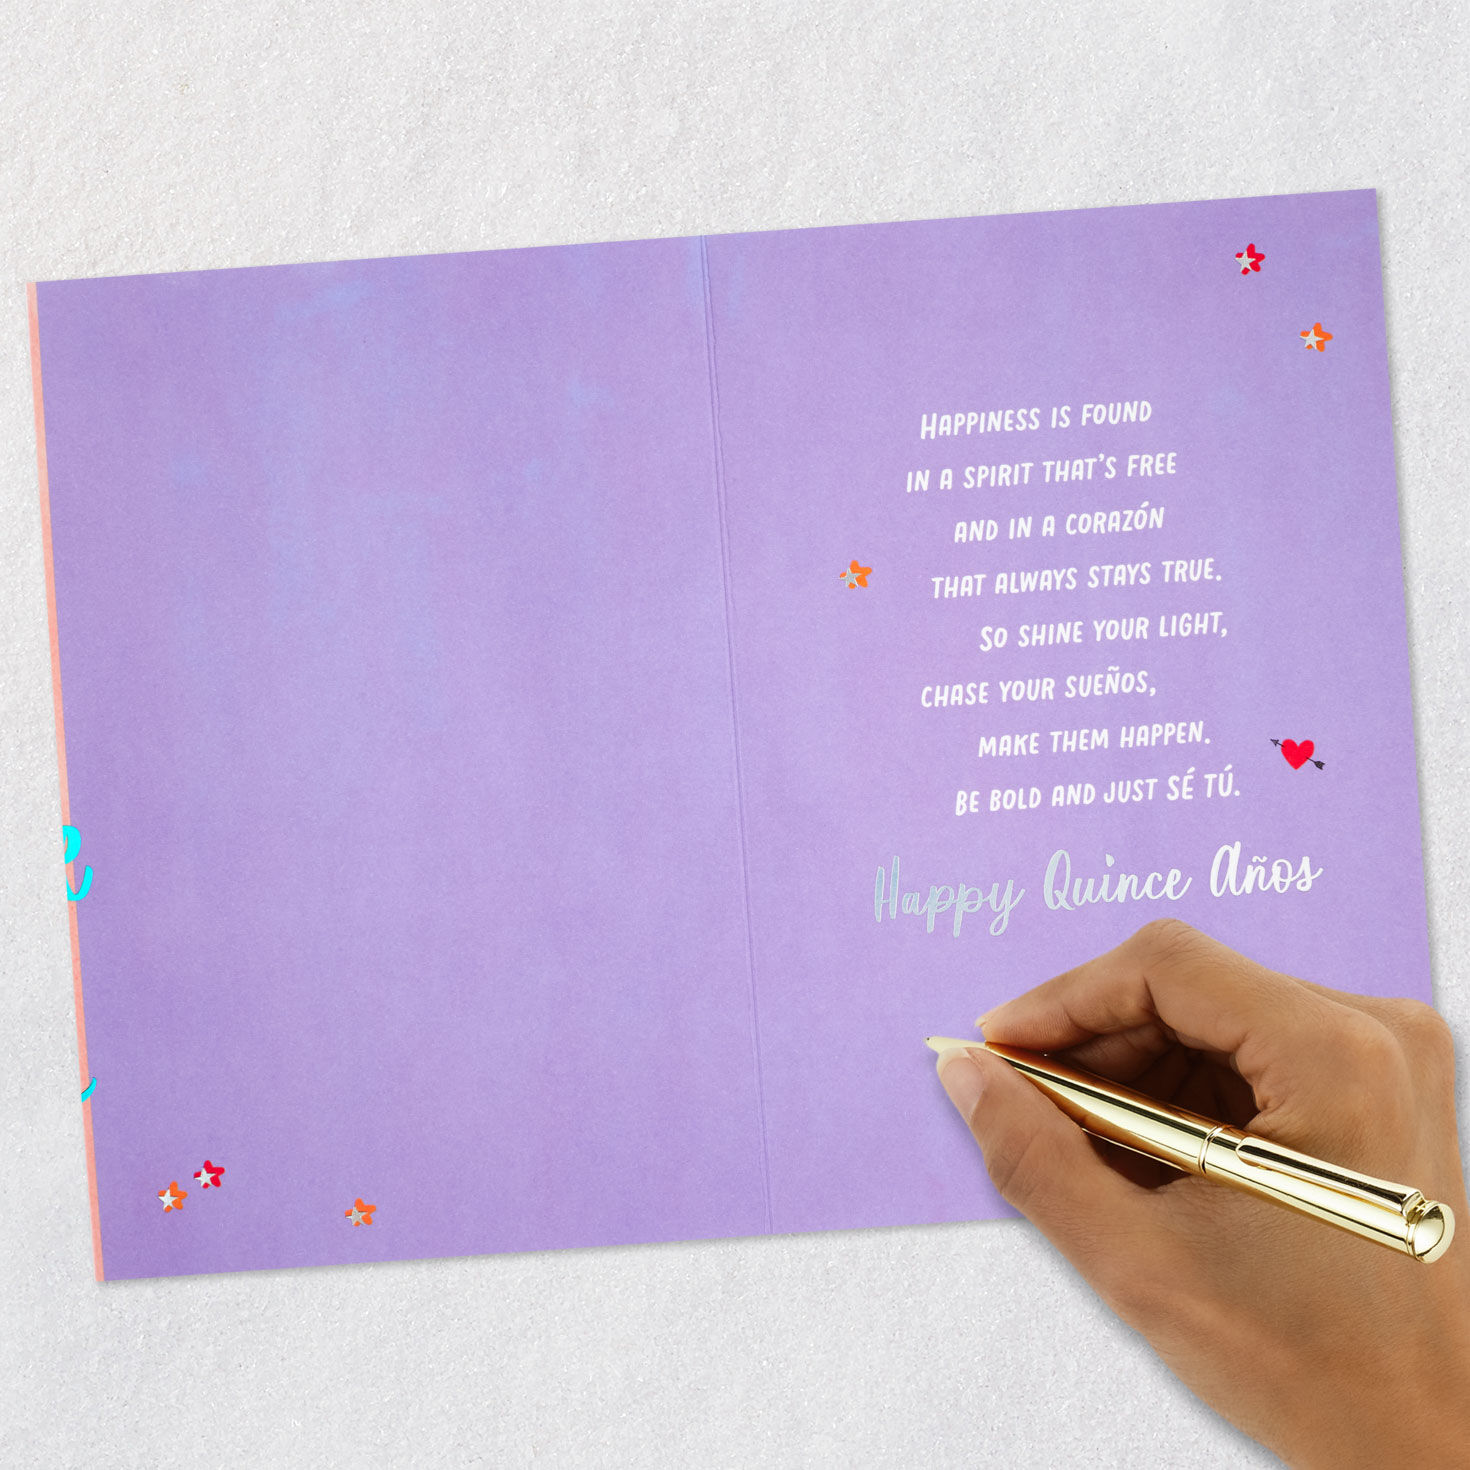 HAPPINESS IS FOUND
IN A SPIRIT THAT'S FREE
AND IN A CORAZÓN
THAT ALWAYS STAYS TRUE.
SO SHINE YOUR LIGHT,
CHASE YOUR SUEÑOS,
MAKE THEM HAPPEN.
BE BOLD AND JUST SÉ TÚ.
Happy Quince Años